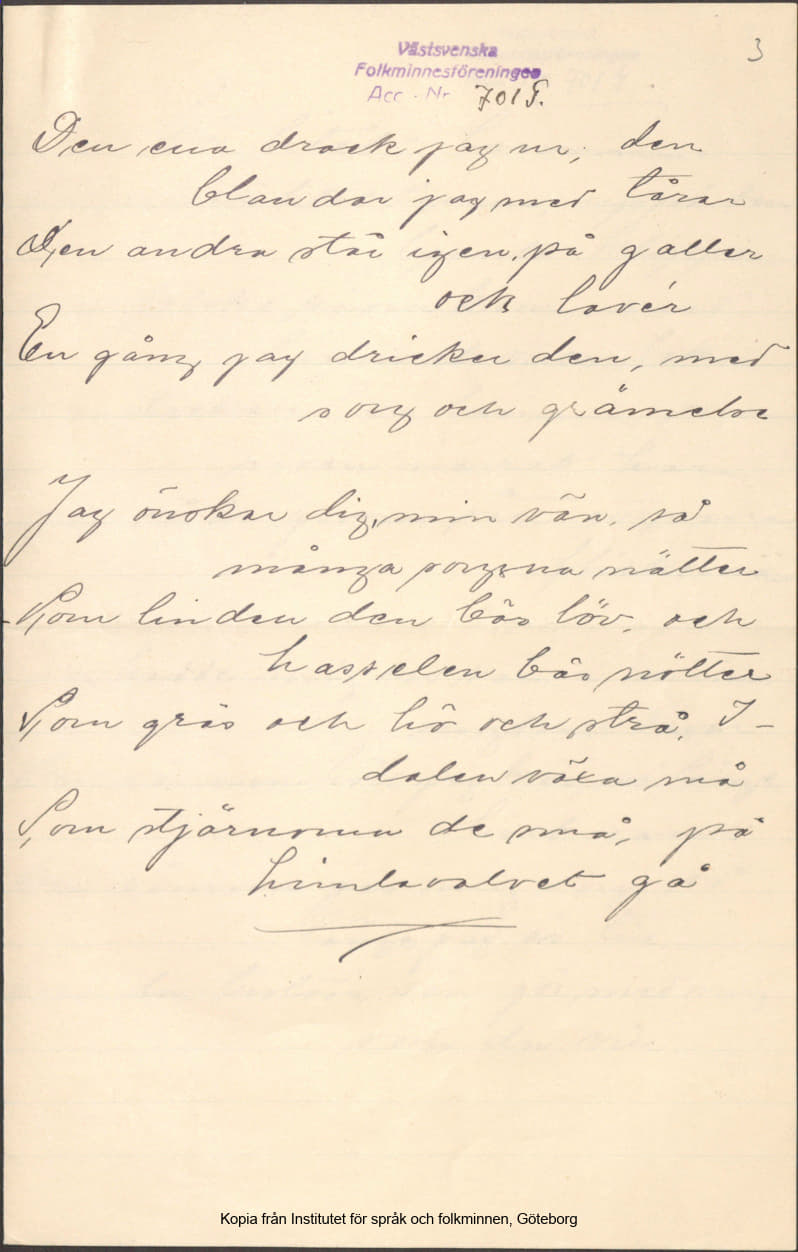 Västsvenska
Folkminnesföreningen
Acc. Nr 701 G.
3
Den ena drack jag ur; den
blandar jag med tårar
Den andra står igen, på galler
och lavér
En gång jag dricker den, med
sorg och grämelse
Jag önskar dig, min vän, så
många sorgsna nätter
Som linden den bär löv, och
hasselen bär nötter
Som gräs och hö och strå, I-
dalen växa må
Som stjärnorna de små, på
himlavalvet gå
Kopia från Institutet för språk och folkminnen, Göteborg